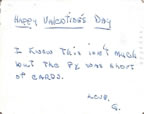 Happy Valentine's Day
I know this isn't much
but the Px was short
of cards.
Love,
G.